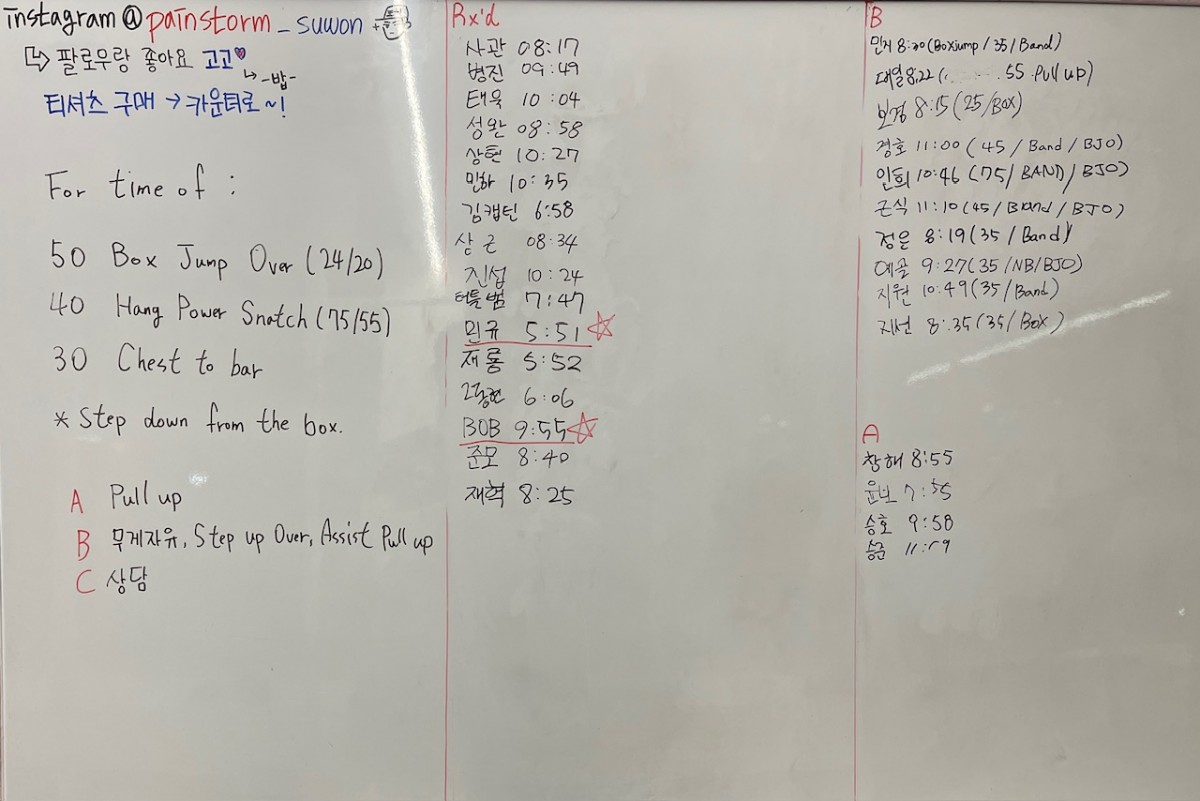 instagram@painstorm_suwon
팔로우랑 좋아요 고고♥
↳ -밥-
티셔츠 구매 → 카운터로~!
For time of :
50 Box Jump Over (24/20)
40 Hang Power Snatch (75/55)
30 Chest to bar
* Step down from the box.
A Pull up
B 무게자유, Step up Over, Assist Pull up
C 상담
Rx'd
사관 08:17
병진 09:49
태욱 10:04
성완 08:58
상현 10:27
민하 10:35
김캡틴 6:58
상근 08:34
진섭 10:24
터틀범 7:47
민규 5:51
재룡 5:52
6:06
BOB 9:55
준모 8:40
재혁 8:25
B
8:20 (Box jump / 35 / Band)
대열 8:22 ( 55 Pull up)
보경 8:15 (25/Box)
경호 11:00 (45 / Band / BJO)
인희 10:46 (75/ BAND/ BJO)
근식 11:10 (45/ Band / BJO)
정은 8:19 (35 / Band)
예골 9:27 (35 /NB/BJO)
지원 10:49 (35/Band)
지선 8:35 (35/Box)
A
창해 8:55
승호 9:58
승준